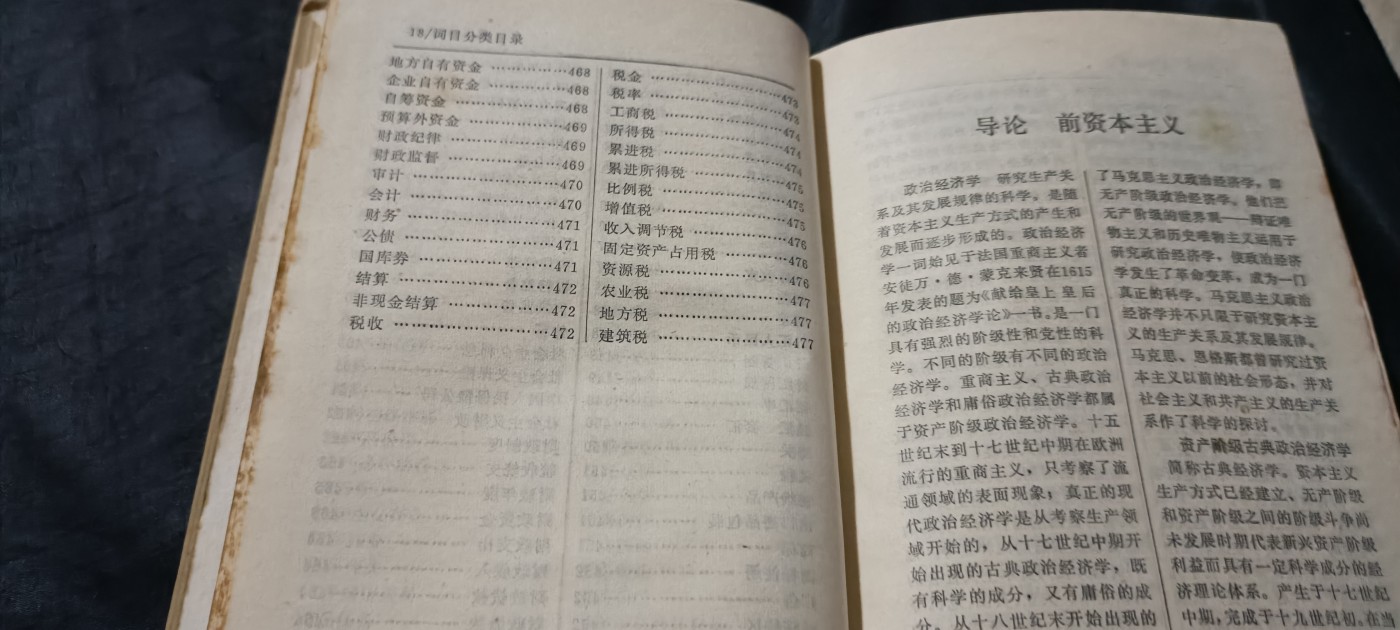 18/词目分类目录
地方自有资金 ……………468
企业自有资金 ……………468
自筹资金 ………………468
预算外资金 ………………469
财政纪律 ………………469
财政监督 ………………469
审计 ……………………470
会计 ……………………470
财务 ……………………471
公债 ……………………471
国库券 …………………471
结算 ……………………472
非现金结算 ………………472
税收 ……………………472
税金 ……………………473
税率 ……………………473
工商税 …………………474
所得税 …………………474
累进税 …………………474
累进所得税 ………………475
比例税 …………………475
增值税 …………………475
收入调节税 ………………476
固定资产占用税 …………476
资源税 …………………476
农业税 …………………477
地方税 …………………477
建筑税 …………………477
导论 前资本主义
政治经济学 研究生产关
系及其发展规律的科学。是随
着资本主义生产方式的产生和
发展而逐步形成的。政治经济
学一词始见于法国重商主义者
安徒万·德·蒙克来贤在1615
年发表的题为《献给皇上皇后
的政治经济学论》一书。是一门
具有强烈的阶级性和党性的科
学。不同的阶级有不同的政治
经济学。重商主义、古典政治
经济学和庸俗政治经济学都属
于资产阶级政治经济学。十五
世纪末到十七世纪中期在欧洲
流行的重商主义，只考察了流
通领域的表面现象；真正的现
代政治经济学是从考察生产领
域开始的，从十七世纪中期开
始出现的古典政治经济学，既
有科学的成分，又有庸俗的成
分。从十八世纪末开始出现的
了马克思主义政治经济学，即
无产阶级政治经济学。他们把
无产阶级的世界观——辩证唯
物主义和历史唯物主义运用于
研究政治经济学，使政治经济
学发生了革命变革，成为一门
真正的科学。马克思主义政治
经济学并不只限于研究资本主
义的生产关系及其发展规律。
马克思、恩格斯都曾研究过资
本主义以前的社会形态，并对
社会主义和共产主义的生产关
系作了科学的探讨。
资产阶级古典政治经济学
简称古典经济学。资本主义
生产方式已经建立、无产阶级
和资产阶级之间的阶级斗争尚
未发展时期代表新兴资产阶级
利益而具有一定科学成分的经
济理论体系。产生于十七世纪
中期，完成于十九世纪初。在当